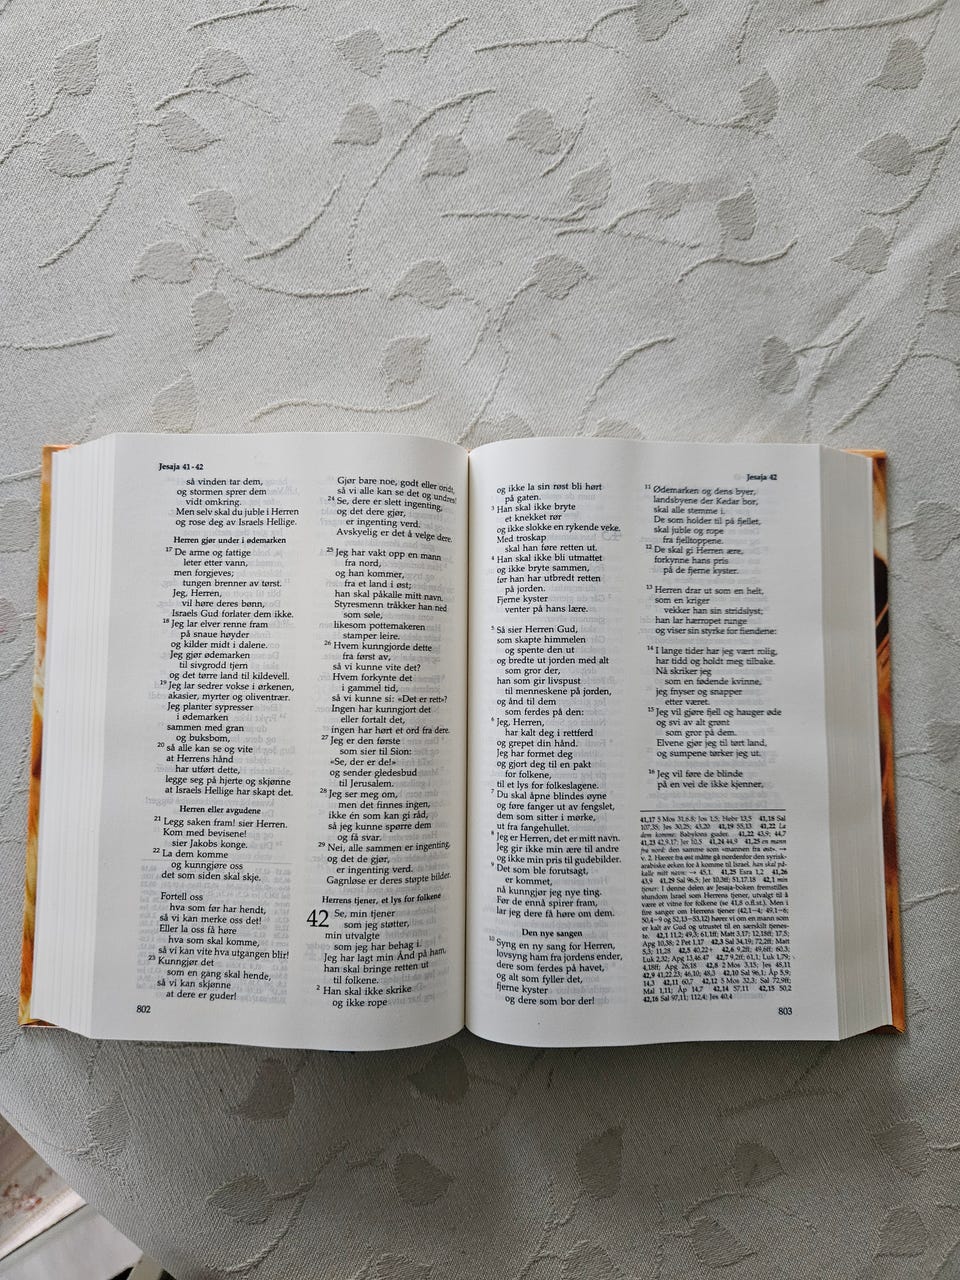 Jesaja 41-42
så vinden tar dem,
og stormen sprer dem
vidt omkring.
Men selv skal du juble i Herren
og rose deg av Israels Hellige.
Herren gjør under i ødemarken
17 De arme og fattige
leter etter vann,
men forgjeves;
tungen brenner av tørst.
Jeg, Herren,
vil høre deres bønn,
Israels Gud forlater dem ikke.
18 Jeg lar elver renne fram
på snaue høyder
og kilder midt i dalene.
Jeg gjør ødemarken
til sivgrodd tjern
og det tørre land til kildevell.
19 Jeg lar sedrer vokse i ørkenen,
akasier, myrter og oliventrær.
Jeg planter sypresser
i ødemarken
sammen med gran
og buksbom,
20 så alle kan se og vite
at Herrens hånd
har utført dette,
legge seg på hjerte og skjønne
at Israels Hellige har skapt det.
Herren eller avgudene
21 Legg saken fram! sier Herren.
Kom med bevisene!
sier Jakobs konge.
22 La dem komme
og kunngjøre oss
det som siden skal skje.
Fortell oss
hva som før har hendt,
så vi kan merke oss det!
Eller la oss få høre
hva som skal komme,
så vi kan vite hva utgangen blir!
23 Kunngjør det
som en gang skal hende,
så vi kan skjønne
at dere er guder!
802
Gjør bare noe, godt eller ondt,
så vi alle kan se det og undres!
24 Se, dere er slett ingenting,
og det dere gjør,
er ingenting verd.
Avskyelig er det å velge dere.
25 Jeg har vakt opp en mann
fra nord,
og han kommer,
fra et land i øst;
han skal påkalle mitt navn.
Styresmenn tråkker han ned
som søle,
likesom pottemakeren
stamper leire.
26 Hvem kunngjorde dette
fra først av,
så vi kunne vite det?
Hvem forkynte det
i gammel tid,
så vi kunne si: «Det er rett»?
Ingen har kunngjort det
eller fortalt det,
ingen har hørt et ord fra dere.
27 Jeg er den første
som sier til Sion:
«Se, der er de!»
og sender gledesbud
til Jerusalem.
28 Jeg ser meg om,
men det finnes ingen,
ikke én som kan gi råd,
så jeg kunne spørre dem
og få svar.
29 Nei, alle sammen er ingenting,
og det de gjør,
er ingenting verd.
Gagnløse er deres støpte bilder.
Herrens tjener, et lys for folkene
42 Se, min tjener
som jeg støtter,
min utvalgte
som jeg har behag i.
Jeg har lagt min Ånd på ham,
han skal bringe retten ut
til folkene.
2 Han skal ikke skrike
og ikke rope
Jesaja 42
og ikke la sin røst bli hørt
på gaten.
3 Han skal ikke bryte
et knekket rør
og ikke slokke en rykende veke.
Med troskap
skal han føre retten ut.
4 Han skal ikke bli utmattet
og ikke bryte sammen,
før han har utbredt retten
på jorden.
Fjerne kyster
venter på hans lære.
5 Så sier Herren Gud,
som skapte himmelen
og spente den ut
og bredte ut jorden med alt
som gror der,
han som gir livspust
til menneskene på jorden,
og ånd til dem
som ferdes på den:
6 Jeg, Herren,
har kalt deg i rettferd
og grepet din hånd.
Jeg har formet deg
og gjort deg til en pakt
for folkene,
til et lys for folkeslagene.
7 Du skal åpne blindes øyne
og føre fanger ut av fengslet,
dem som sitter i mørke,
ut fra fangehullet.
8 Jeg er Herren, det er mitt navn.
Jeg gir ikke min ære til andre
og ikke min pris til gudebilder.
9 Det som ble forutsagt,
er kommet,
nå kunngjør jeg nye ting.
Før de ennå spirer fram,
lar jeg dere få høre om dem.
Den nye sangen
10 Syng en ny sang for Herren,
lovsyng ham fra jordens ender,
dere som ferdes på havet,
og alt som fyller det,
fjerne kyster
og dere som bor der!
11 Ødemarken og dens byer,
landsbyene der Kedar bor,
skal alle stemme i.
De som holder til på fjellet,
skal juble og rope
fra fjelltoppene.
12 De skal gi Herren ære,
forkynne hans pris
på de fjerne kyster.
13 Herren drar ut som en helt,
som en kriger
vekker han sin stridslyst;
han lar hærropet runge
og viser sin styrke for fiendene:
14 I lange tider har jeg vært rolig,
har tidd og holdt meg tilbake.
Nå skriker jeg
som en fødende kvinne,
jeg fnyser og snapper
etter været.
15 Jeg vil gjøre fjell og hauger øde
og svi av alt grønt
som gror på dem.
Elvene gjør jeg til tørt land,
og sumpene tørker jeg ut.
16 Jeg vil føre de blinde
på en vei de ikke kjenner,
41,17 5 Mos 31,6.8; Jos 1,5; Hebr 13,5 41,18 Sal
107,35; Jes 30,25; 43,20 41,19 55,13 41,22 La
dem komme: Babylons guder. 41,22 43,9; 44,7
41,23 42,9.17; Jer 10,5 41,24 44,9 41,25 en mann
fra nord: den samme som «mannen fra øst», →
v. 2. Hærer fra øst måtte gå nordenfor den syrisk-
arabiske ørken for å komme til Israel. han skal på-
kalle mitt navn: → 45,1. 41,25 Esra 1,2 41,26
43,9 41,29 Sal 96,5; Jer 10,3ff; 51,17.18 42,1 min
tjener: I denne delen av Jesaja-boken fremstilles
stundom Israel som Herrens tjener, utvalgt til å
være et vitne for folkene (se 41,8 o.fl.st.). Men i
fire sanger om Herrens tjener (42,1-4; 49,1-6;
50,4-9 og 52,13-53,12) hører vi om en mann som
er kalt av Gud og utrustet til en særskilt tjenes-
te. 42,1 11,2; 49,3; 61,1ff; Matt 3,17; 12,18ff; 17,5;
Apg 10,38; 2 Pet 1,17 42,3 Sal 34,19; 72,2ff; Matt
5,3; 11,28 42,5 40,22+ 42,6 9,2ff; 49,6ff; 60,3;
Luk 2,32; Apg 13,46.47 42,7 9,2ff; 61,1; Luk 1,79;
4,18ff; Apg 26,18 42,8 2 Mos 3,15; Jes 48,11
42,9 41,22.23; 46,10; 48,3 42,10 Sal 96,1; Åp 5,9;
14,3 42,11 60,7 42,12 5 Mos 32,3; Sal 72,9ff;
Mal 1,11; Åp 14,7 42,14 57,11 42,15 50,2
42,16 Sal 97,11; 112,4; Jes 40,4
803